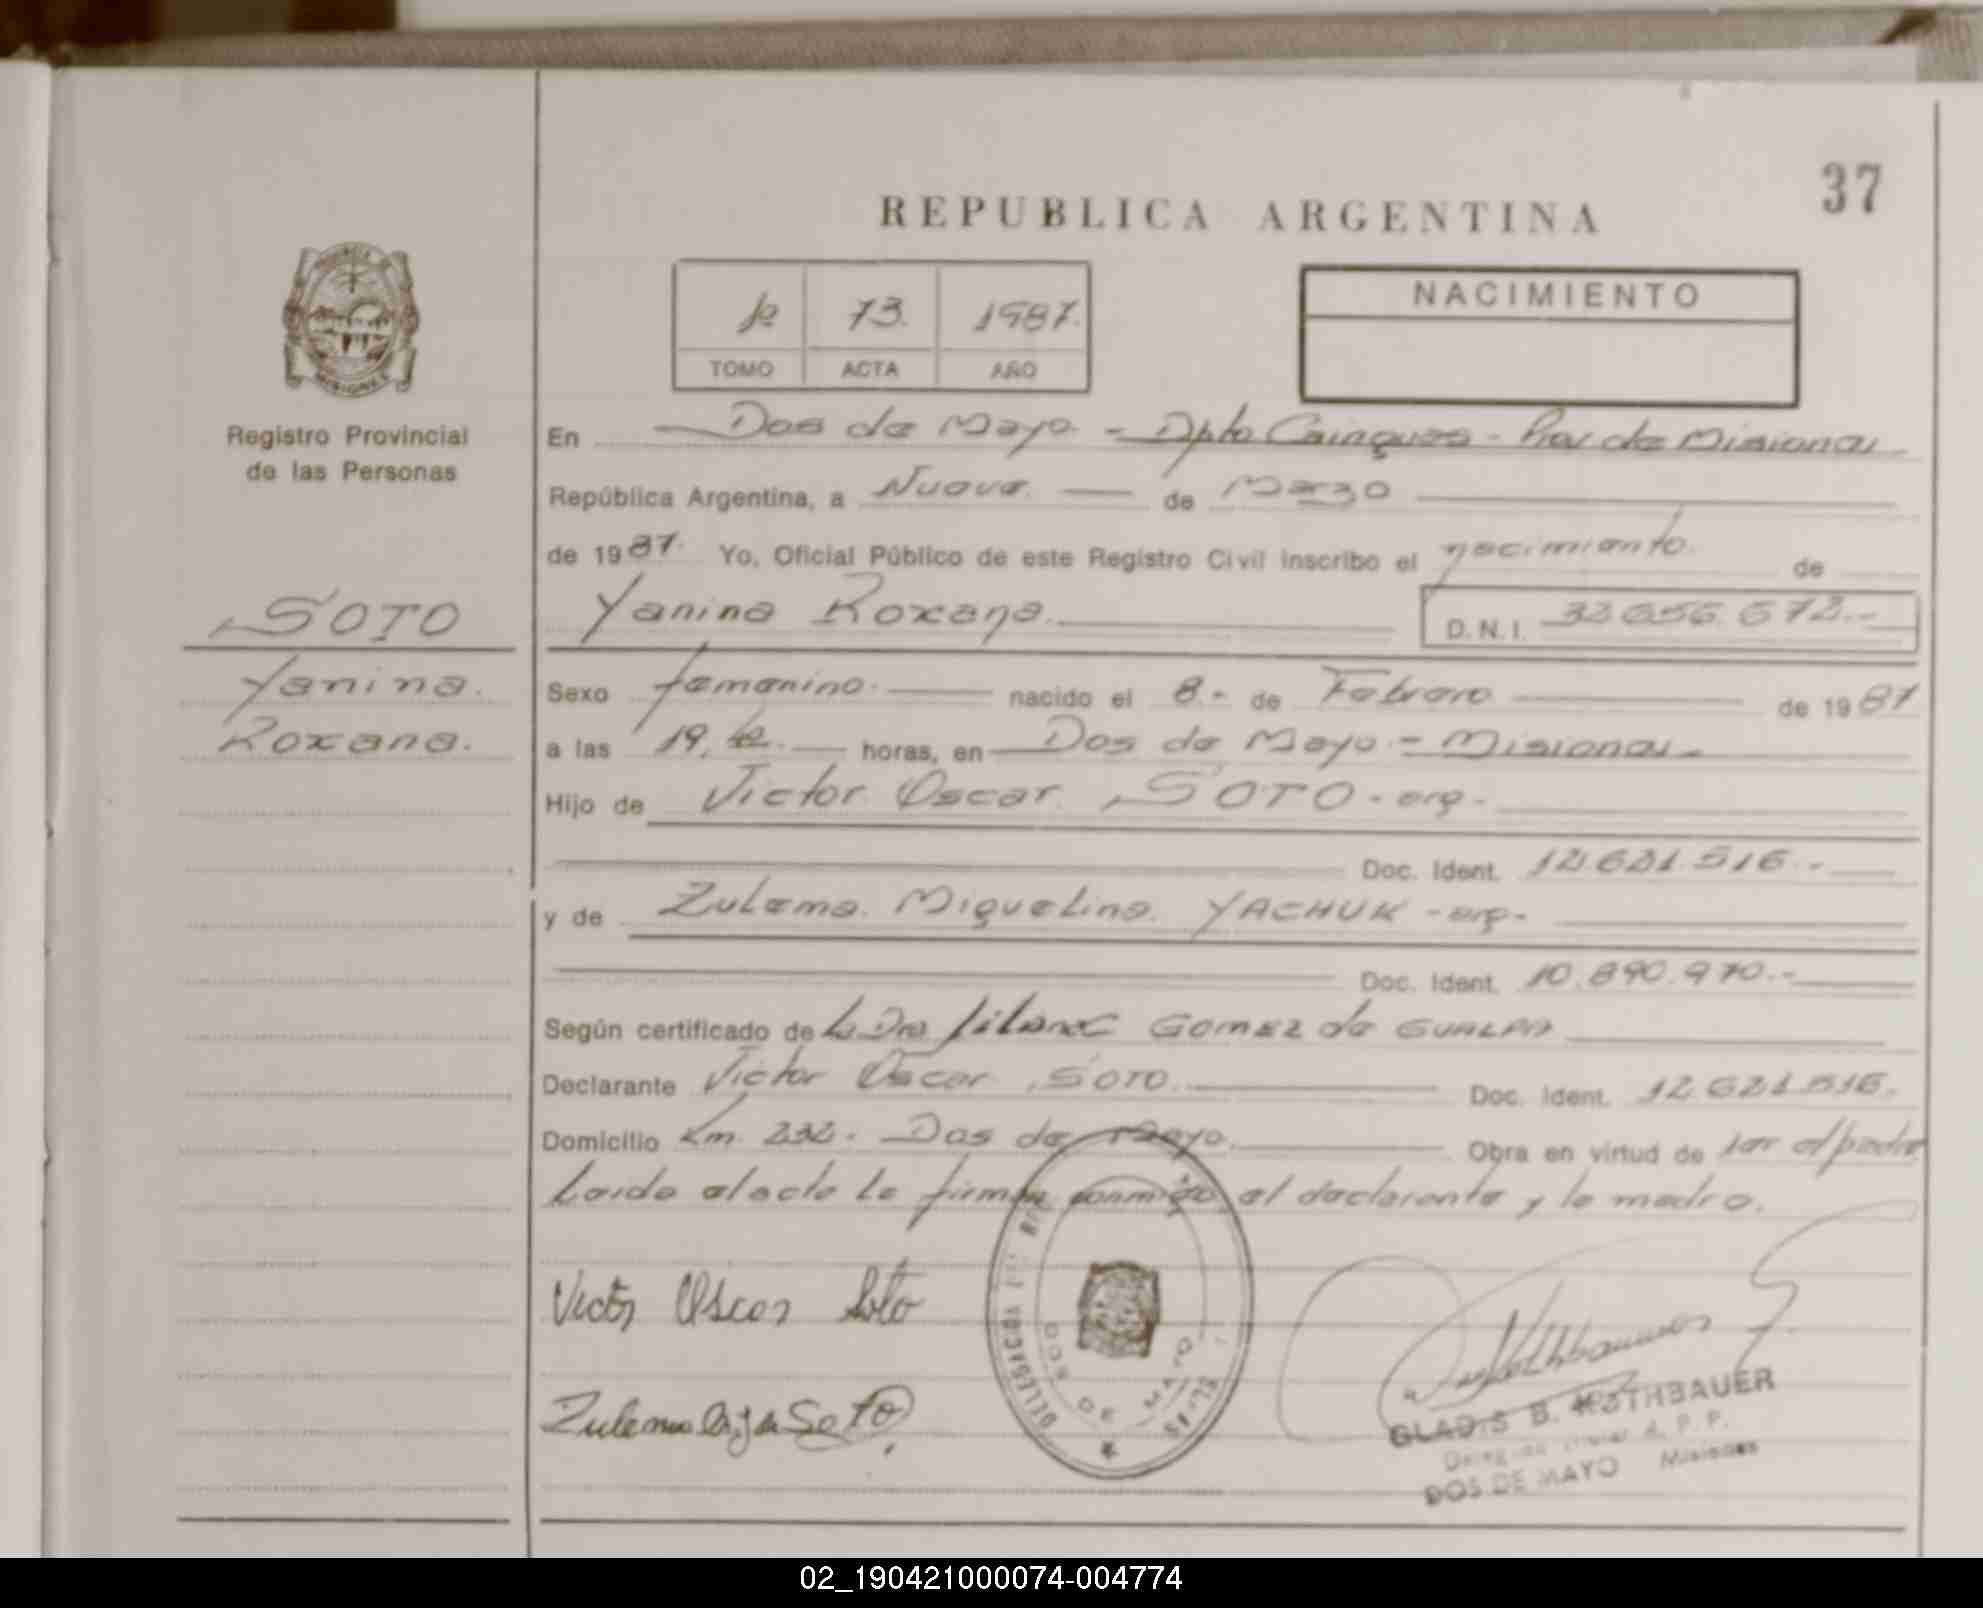 37
REPUBLICA ARGENTINA
1º 73. 1987.
TOMO ACTA AÑO
NACIMIENTO
MISIONES
Registro Provincial
de las Personas
SOTO
Yanina
Roxana.
En Dos de Mayo - Dpto Cainguas - Prov de Misiones
República Argentina, a Nueve de Marzo
de 1987. Yo, Oficial Público de este Registro Civil inscribo el nacimiento. de
Yanina Roxana. D.N.I. 32656.672.-
Sexo femenino. nacido el 8.- de Febrero de 1987
a las 19, horas, en Dos de Mayo - Misiones
Hijo de Victor Oscar SOTO - arg -
Doc. Ident. 12.621.516.-
y de Zulema Miguelina YACHUK - arg -
Doc. Ident. 10.890.970.-
Según certificado de la Dra Liliana GOMEZ de
Declarante Victor Oscar SOTO. Doc. Ident. 12.621.516.
Domicilio Km. 232. Dos de Mayo. Obra en virtud de ser el padre
Leida el acta la firman conmigo el declarante y la madre.
Victor Oscar Soto
Zulema de Soto
DOS DE MAYO
GLADIS B. ROTHBAUER
DOS DE MAYO Misiones
02_190421000074-004774